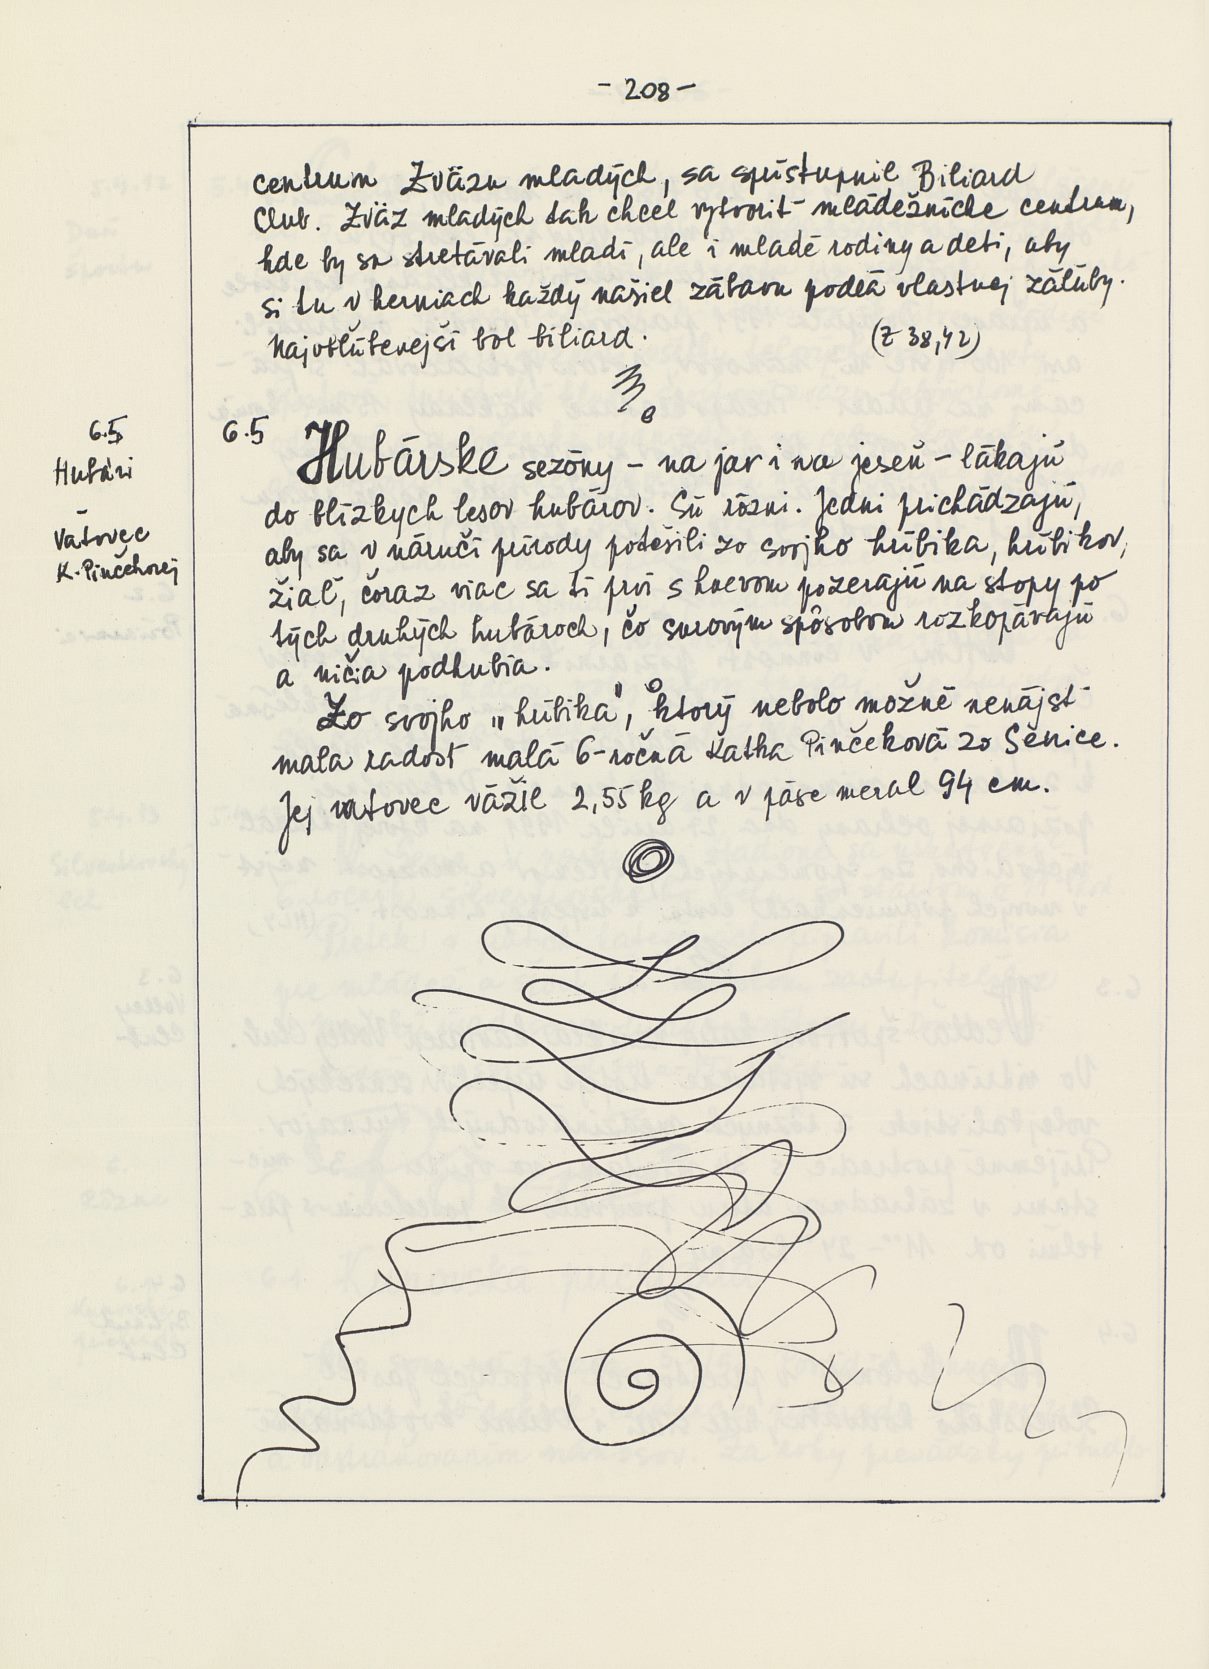 - 208 -
centrum Zväzu mladých, sa sprístupnil Biliard
Club. Zväz mladých tak chcel vytvoriť mládežnícke centrum,
kde by sa stretávali mladí, ale i mladé rodiny a deti, aby
si tu v herniach každý našiel zábavu podľa vlastnej záľuby.
Najobľúbenejší bol biliard. (Z 38,42)
6.5
Hubári
Vatovec
K. Pinčekovej
6.5 Hubárske sezóny - na jar i na jeseň - lákajú
do blízkych lesov hubárov. Sú rôzni. Jedni prichádzajú,
aby sa v náručí prírody potešili zo svojho hríbika, hríbikov,
žiaľ, čoraz viac sa tí prví s hnevom pozerajú na stopy po
tých druhých hubároch, čo surovým spôsobom rozkopávajú
a ničia podhubia.
Zo svojho „hríbika", ktorý nebolo možné nenájsť
mala radosť malá 6-ročná Katka Pinčeková zo Senice.
Jej vatovec vážil 2,55 kg a v páse meral 94 cm.